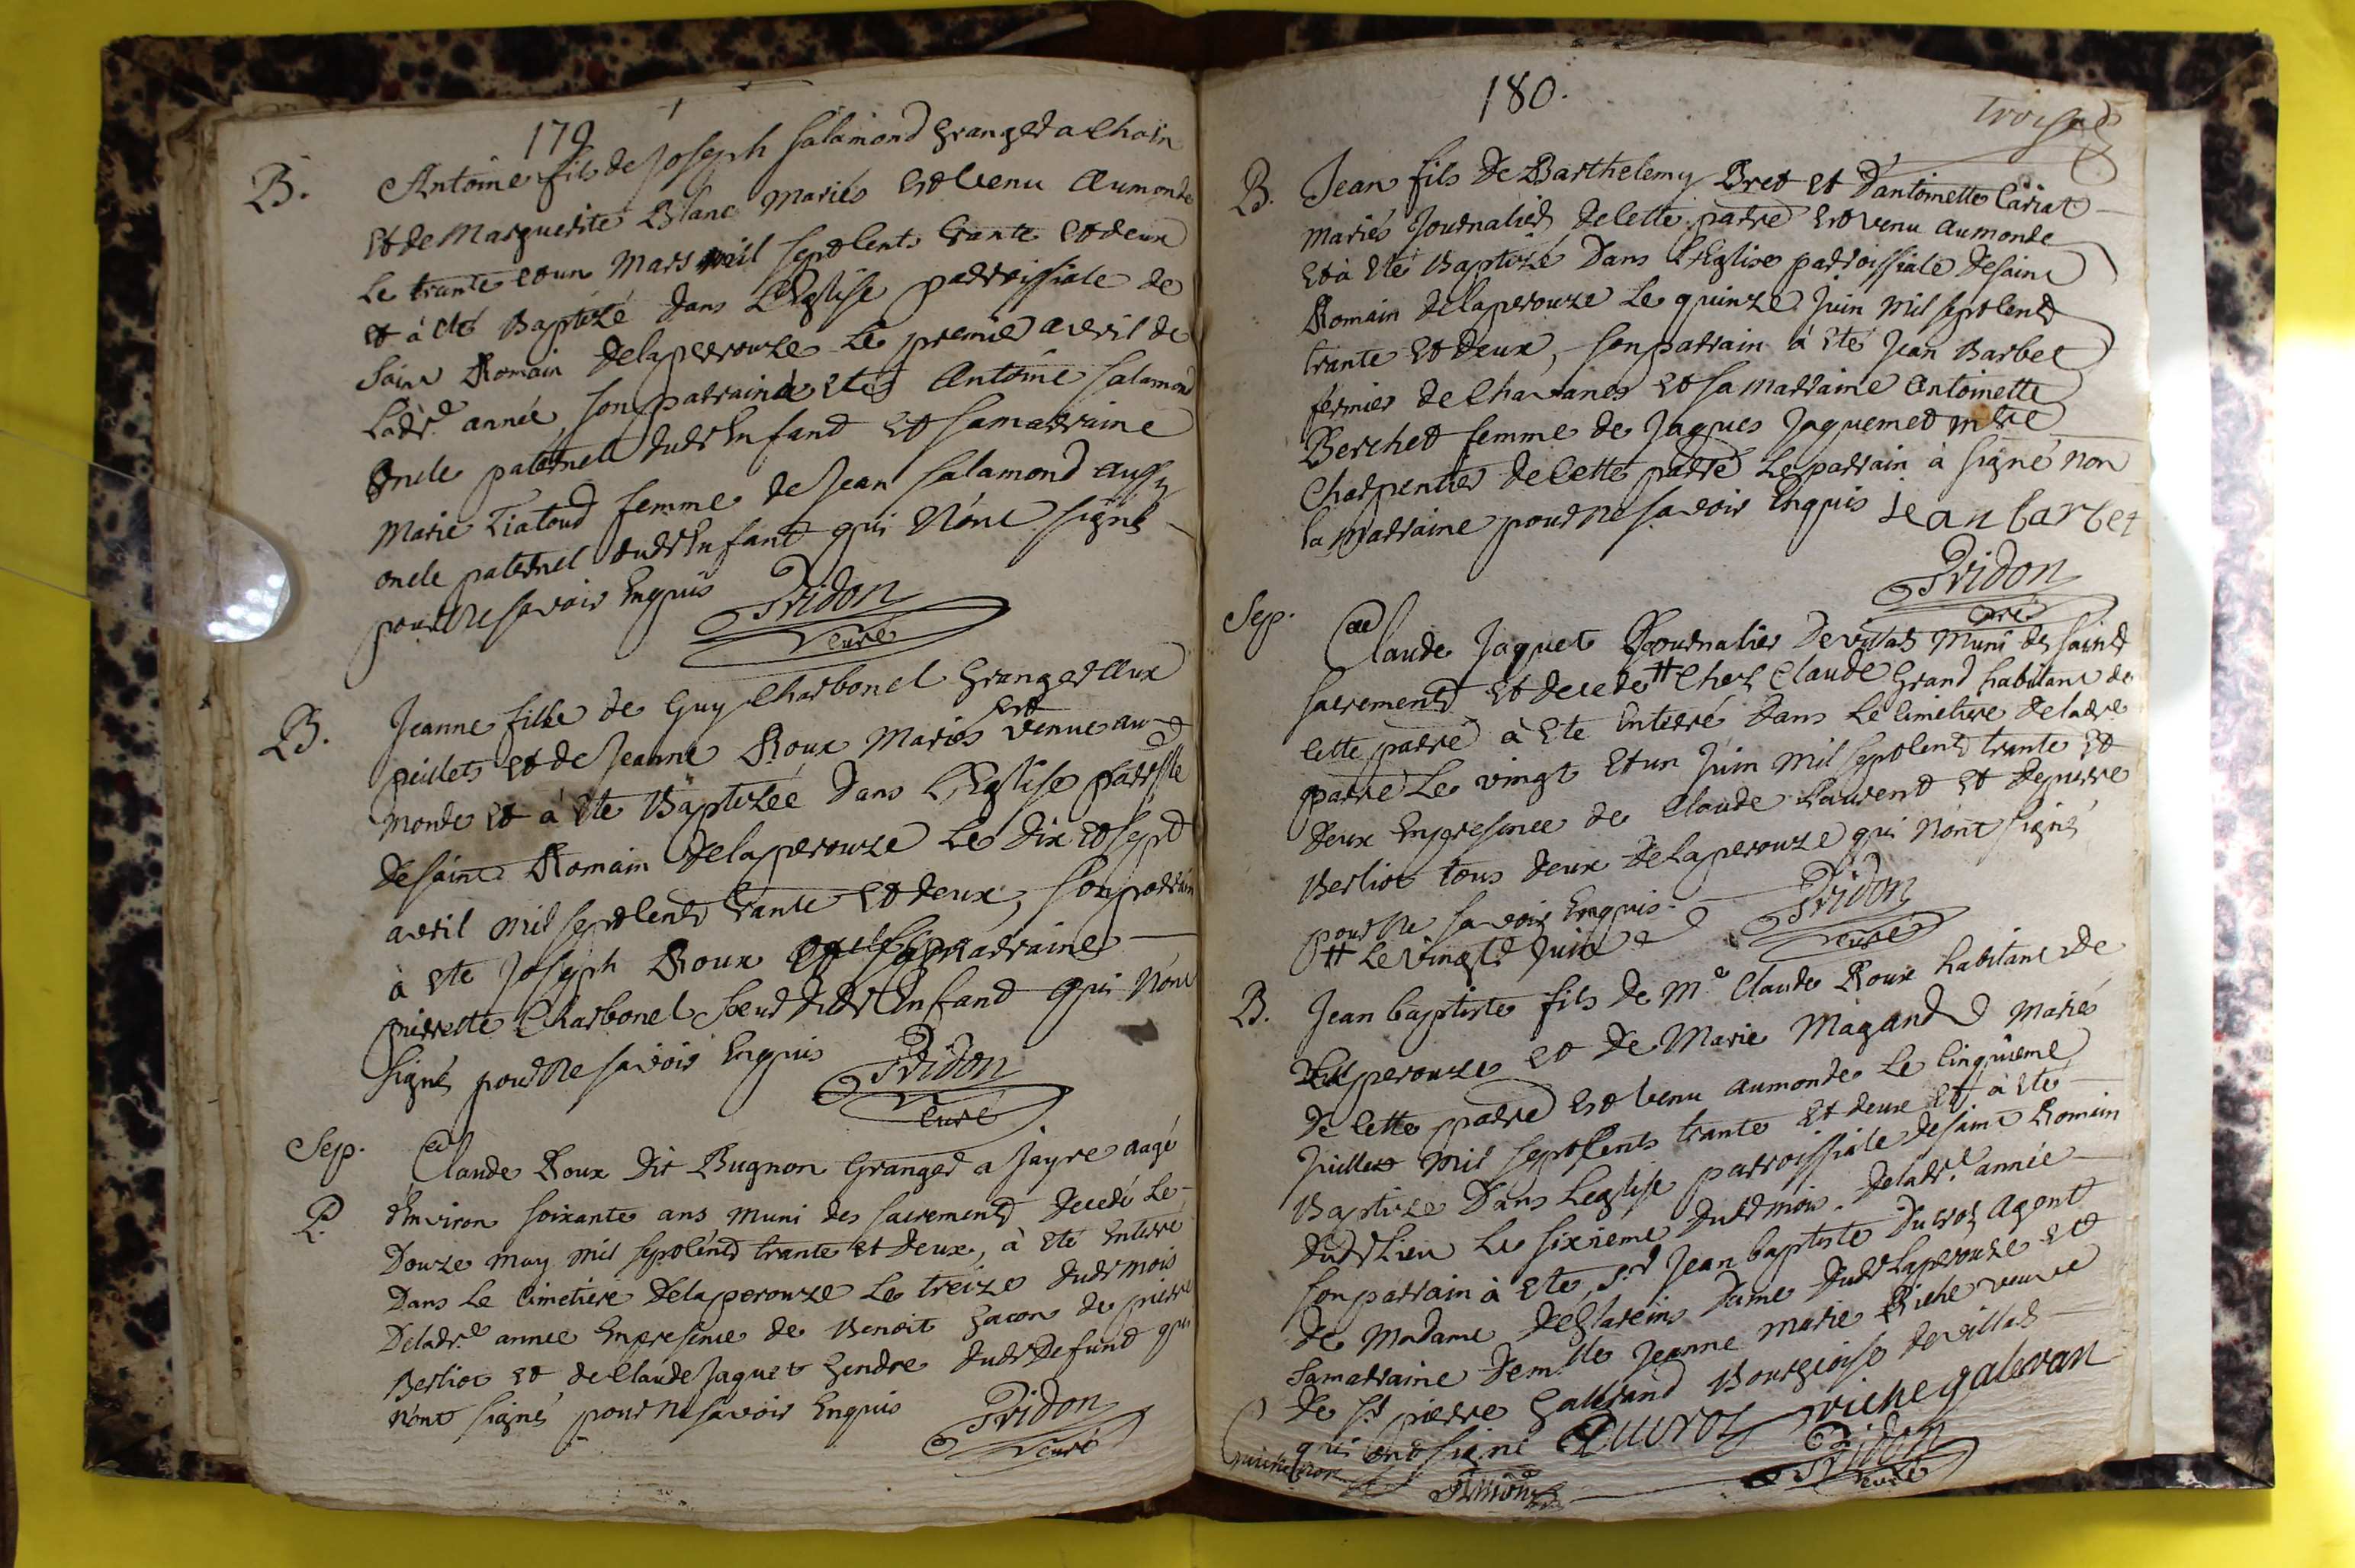 179
B. Antoine fils de Joseph Salamond granger a Chain
et de Marguerite Blanc mariés est venu au monde
le trante et un mars mil sept cents trante et deux
et à eté Baptizé dans L'Eglise parroissiale de
saint Romain delaperouze le premier avril de
ladte année, son parrain à eté Antoine Salamond
oncle paternel dudt Enfant et sa marraine
Marie femme de Jean Salamond aussy
oncle paternel dudt Enfant qui n'ont signés
pour ne savoir Enquis Pridon
curé
B. Jeanne fille de Guy Charbonel granger aux
peillets et de Jeanne Roux Mariés est venue au
monde et à eté Baptizée dans L'Eglise parrssle
de saint Romain delaperouze le dix et sept
avril mil sept cents trante et deux, son parrain
à eté Joseph Roux et sa marraine
pierrette Charbonel soeur dudt Enfant qui n'ont
signés pour ne savoir Enquis Pridon
curé
Sep. Claude Roux dit Bugnon Granger a Jayre aagé
P. d'Environ soixante ans muni des sacrements decedé le
Douze may mil sept cents trante et deux, à eté Enterré
Dans le cimetiere delaperouze le treize dudt mois
deladte année Enpresence de Benoit de pierre
Berliot et de Claude Jaquet gendre dudt defunt qui
n'ont signés pour ne savoir Enquis Pridon
curé
180.
B. Jean fils de Barthelemy Bret et d'antoinette Cariat
mariés Journalier de cette parre est venu au monde
et à eté Baptizé Dans L'Eglise parroissiale de saint
Romain delaperouze le quinze Juin mil sept cents
trante et deux, son parrain à eté Jean Barbet
fermier de Chavanes et sa marraine Antoinette
Berchet femme de Jaques Jaquemet mtre
Charpentier de cette parre le parrain à signé non
la marraine pour ne savoir Enquis jean barbet
Pridon
curé
Sep. Claude Jaquet Journalier de villars muni des saints
sacrements et decedé # chez Claude Grand habitant de
cette parre à eté Enterré dans le cimetiere deladte
parre le vingt et un Juin mil sept cents trante et
deux Enpresence de Claude Laurent et de pierre
Berliot tous deux delaperouze qui n'ont signés
pour ne savoir Enquis. Pridon
# le vingt Juin curé
B. Jean baptiste fils de Me Claude Roux habitant de
Laperouze et de Marie Magand mariés
de cette parre est venu au monde le cinquieme
Juillet mil sept cents trante et deux et à eté
Baptizé Dans l'eglise parroissiale de saint Romain
dudt Lieu le sixieme dudt mois deladte année
son parrain à eté, sr Jean baptiste Ducros agent
de Madame deglareins Dame dudt Laperouze et
sa marraine demlle Jeanne marie Riche veuve
de sr pierre Galerand Bourgeoise de villars
qui ont signé Ducros riche galeran
Pridon
curé